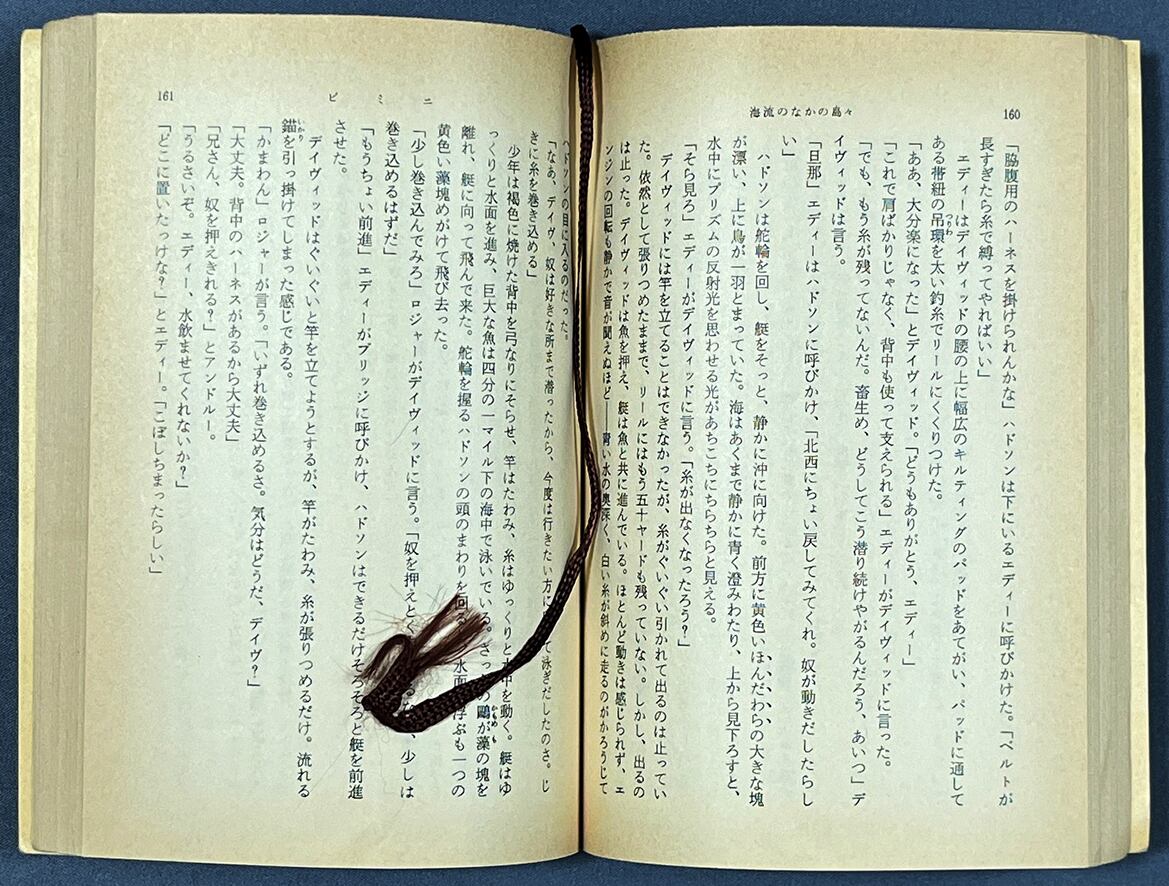 160
海流のなかの島々
「脇腹用のハーネスを掛けられんかな」ハドソンは下にいるエディーに呼びかけた。「ベルトが
長すぎたら糸で縛ってやればいい」
エディーはデイヴィッドの腰の上に幅広のキルティングのパッドをあてがい、パッドに通して
ある帯紐の吊環を太い釣糸でリールにくくりつけた。
つりわ
「ああ、大分楽になった」とデイヴィッド。「どうもありがとう、エディー」
「これで肩ばかりじゃなく、背中も使って支えられる」エディーがデイヴィッドに言った。
「でも、もう糸が残ってないんだ。畜生め、どうしてこう潜り続けやがるんだろう、あいつ」デ
イヴィッドは言う。
「旦那」エディーはハドソンに呼びかけ、「北西にちょい戻してみてくれ。奴が動きだしたらし
い」
ハドソンは舵輪を回し、艇をそっと、静かに沖に向けた。前方に黄色いほんだわらの大きな塊
が漂い、上に鳥が一羽とまっていた。海はあくまで静かに青く澄みわたり、上から見下ろすと、
水中にプリズムの反射光を思わせる光があちこちにちらちらと見える。
「そら見ろ」エディーがデイヴィッドに言う。「糸が出なくなったろう?」
デイヴィッドには竿を立てることはできなかったが、糸がぐいぐい引かれて出るのは止ってい
た。依然として張りつめたままで、リールにはもう五十ヤードも残っていない。しかし、出るの
は止った。デイヴィッドは魚を押え、艇は魚と共に進んでいる。ほとんど動きは感じられず、エ
ンジンの回転も静かで音が聞えぬほど――青い水の奥深く、白い糸が斜めに走るのがかろうじて
161
ビミニ
ハドソンの目に入るのだった。
「なあ、デイヴ、奴は好きな所まで潜ったから、今度は行きたい方に て泳ぎだしたのさ。じ
きに糸を巻き込める」
少年は褐色に焼けた背中を弓なりにそらせ、竿はたわみ、糸はゆっくりと 中を動く。艇はゆ
っくりと水面を進み、巨大な魚は四分の一マイル下の海中で泳いでいる。さっ の鷗が藻の塊を
かもめ も
離れ、艇に向って飛んで来た。舵輪を握るハドソンの頭のまわりを回 水面 浮ぶも一つの
黄色い藻塊めがけて飛び去った。
「少し巻き込んでみろ」ロジャーがデイヴィッドに言う。「奴を押えとく 、少しは
巻き込めるはずだ」
「もうちょい前進」エディーがブリッジに呼びかけ、ハドソンはできるだけそろそろと艇を前進
させた。
デイヴィッドはぐいぐいと竿を立てようとするが、竿がたわみ、糸が張りつめるだけ。流れる
錨を引っ掛けてしまった感じである。
いかり
「かまわん」ロジャーが言う。「いずれ巻き込めるさ。気分はどうだ、デイヴ?」
「大丈夫。背中のハーネスがあるから大丈夫」
「兄さん、奴を押えきれる?」とアンドルー。
「うるさいぞ。エディー、水飲ませてくれないか?」
「どこに置いたっけな?」とエディー。「こぼしちまったらしい」